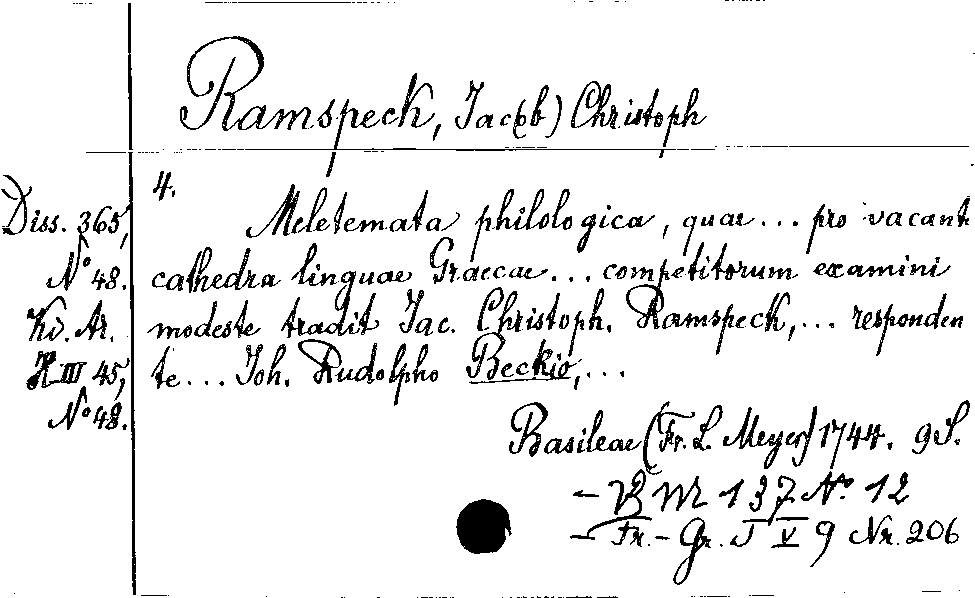 Ramspeck, Jac(ob) Christoph
4.
Diss. 365,
No 48.
Ki. Ar.
H III 45,
No 48.
Meletemata philologica, quae ... pro vacant
cathedra linguae Graecae ... competitorum examini
modeste tradit Jac. Christoph. Ramspeck, ... responden
te ... Joh. Rudolpho Beckio, ...
Basileae (Fr. L. Meyer) 1744. 9 S.
- VB Mr 137 No. 12
- Fr. - Gr. J V 9 Nr. 206